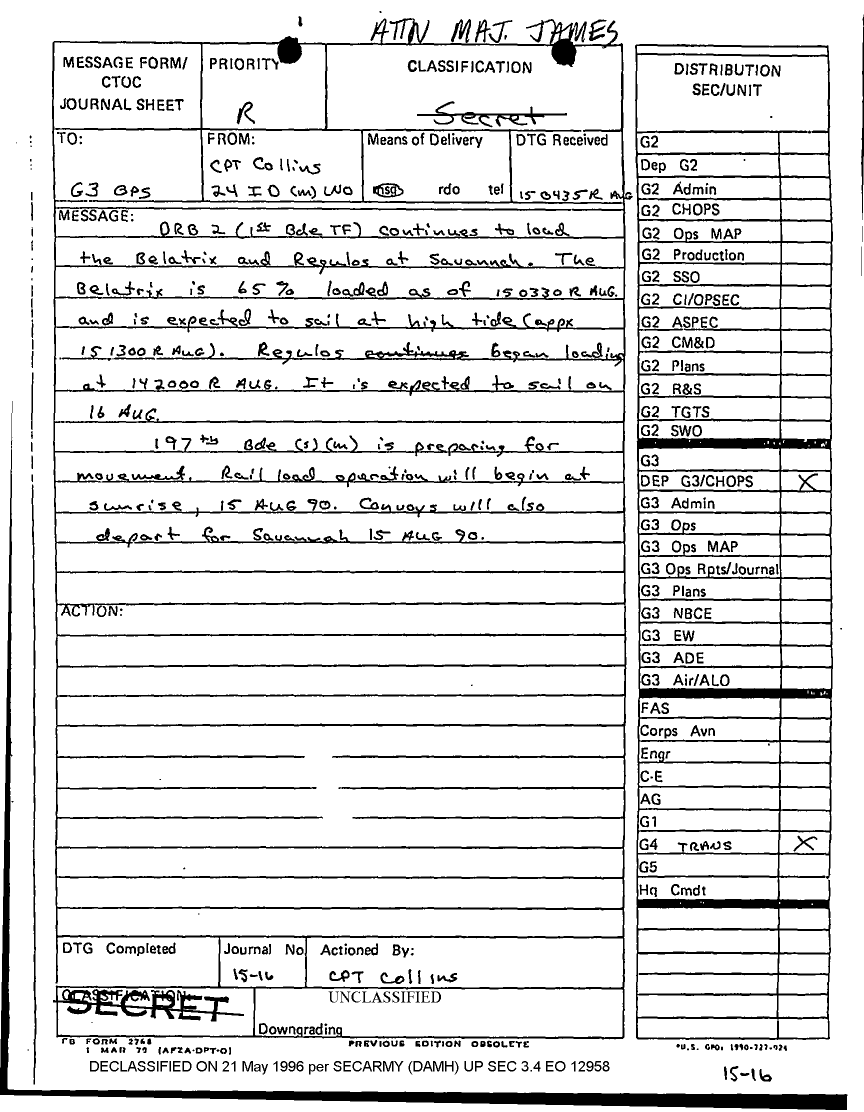 ATTN MAJ. JAMES
MESSAGE FORM/
CTOC
JOURNAL SHEET
PRIORITY
R
CLASSIFICATION
Secret
TO:
G3 OPS
FROM:
CPT Collins
24 ID (m) LNO
Means of Delivery
msg rdo tel
DTG Received
150435R AUG
MESSAGE:
DRB 2 (1st Bde TF) continues to load
the Belatrix and Regulos at Savannah. The
Belatrix is 65% loaded as of 150330R AUG.
and is expected to sail at high tide (appx
151300R AUG). Regulos continues began loading
at 142000R AUG. It is expected to sail on
16 AUG.
197th Bde (s)(m) is preparing for
movement. Rail load operation will begin at
sunrise, 15 AUG 90. Convoys will also
depart for Savannah 15 AUG 90.
ACTION:
DTG Completed
Journal No
15-16
Actioned By:
CPT Collins
CLASSIFICATION:
SECRET
UNCLASSIFIED
Downgrading
FB FORM 2768
1 MAR 79 (AFZA-DPT-O)
PREVIOUS EDITION OBSOLETE
DECLASSIFIED ON 21 May 1996 per SECARMY (DAMH) UP SEC 3.4 EO 12958
DISTRIBUTION
SEC/UNIT
G2
Dep G2
G2 Admin
G2 CHOPS
G2 Ops MAP
G2 Production
G2 SSO
G2 CI/OPSEC
G2 ASPEC
G2 CM&D
G2 Plans
G2 R&S
G2 TGTS
G2 SWO
G3
DEP G3/CHOPS X
G3 Admin
G3 Ops
G3 Ops MAP
G3 Ops Rpts/Journal
G3 Plans
G3 NBCE
G3 EW
G3 ADE
G3 Air/ALO
FAS
Corps Avn
Engr
C-E
AG
G1
G4 TRANS X
G5
Hq Cmdt
*U.S. GPO: 1990-727-024
15-16